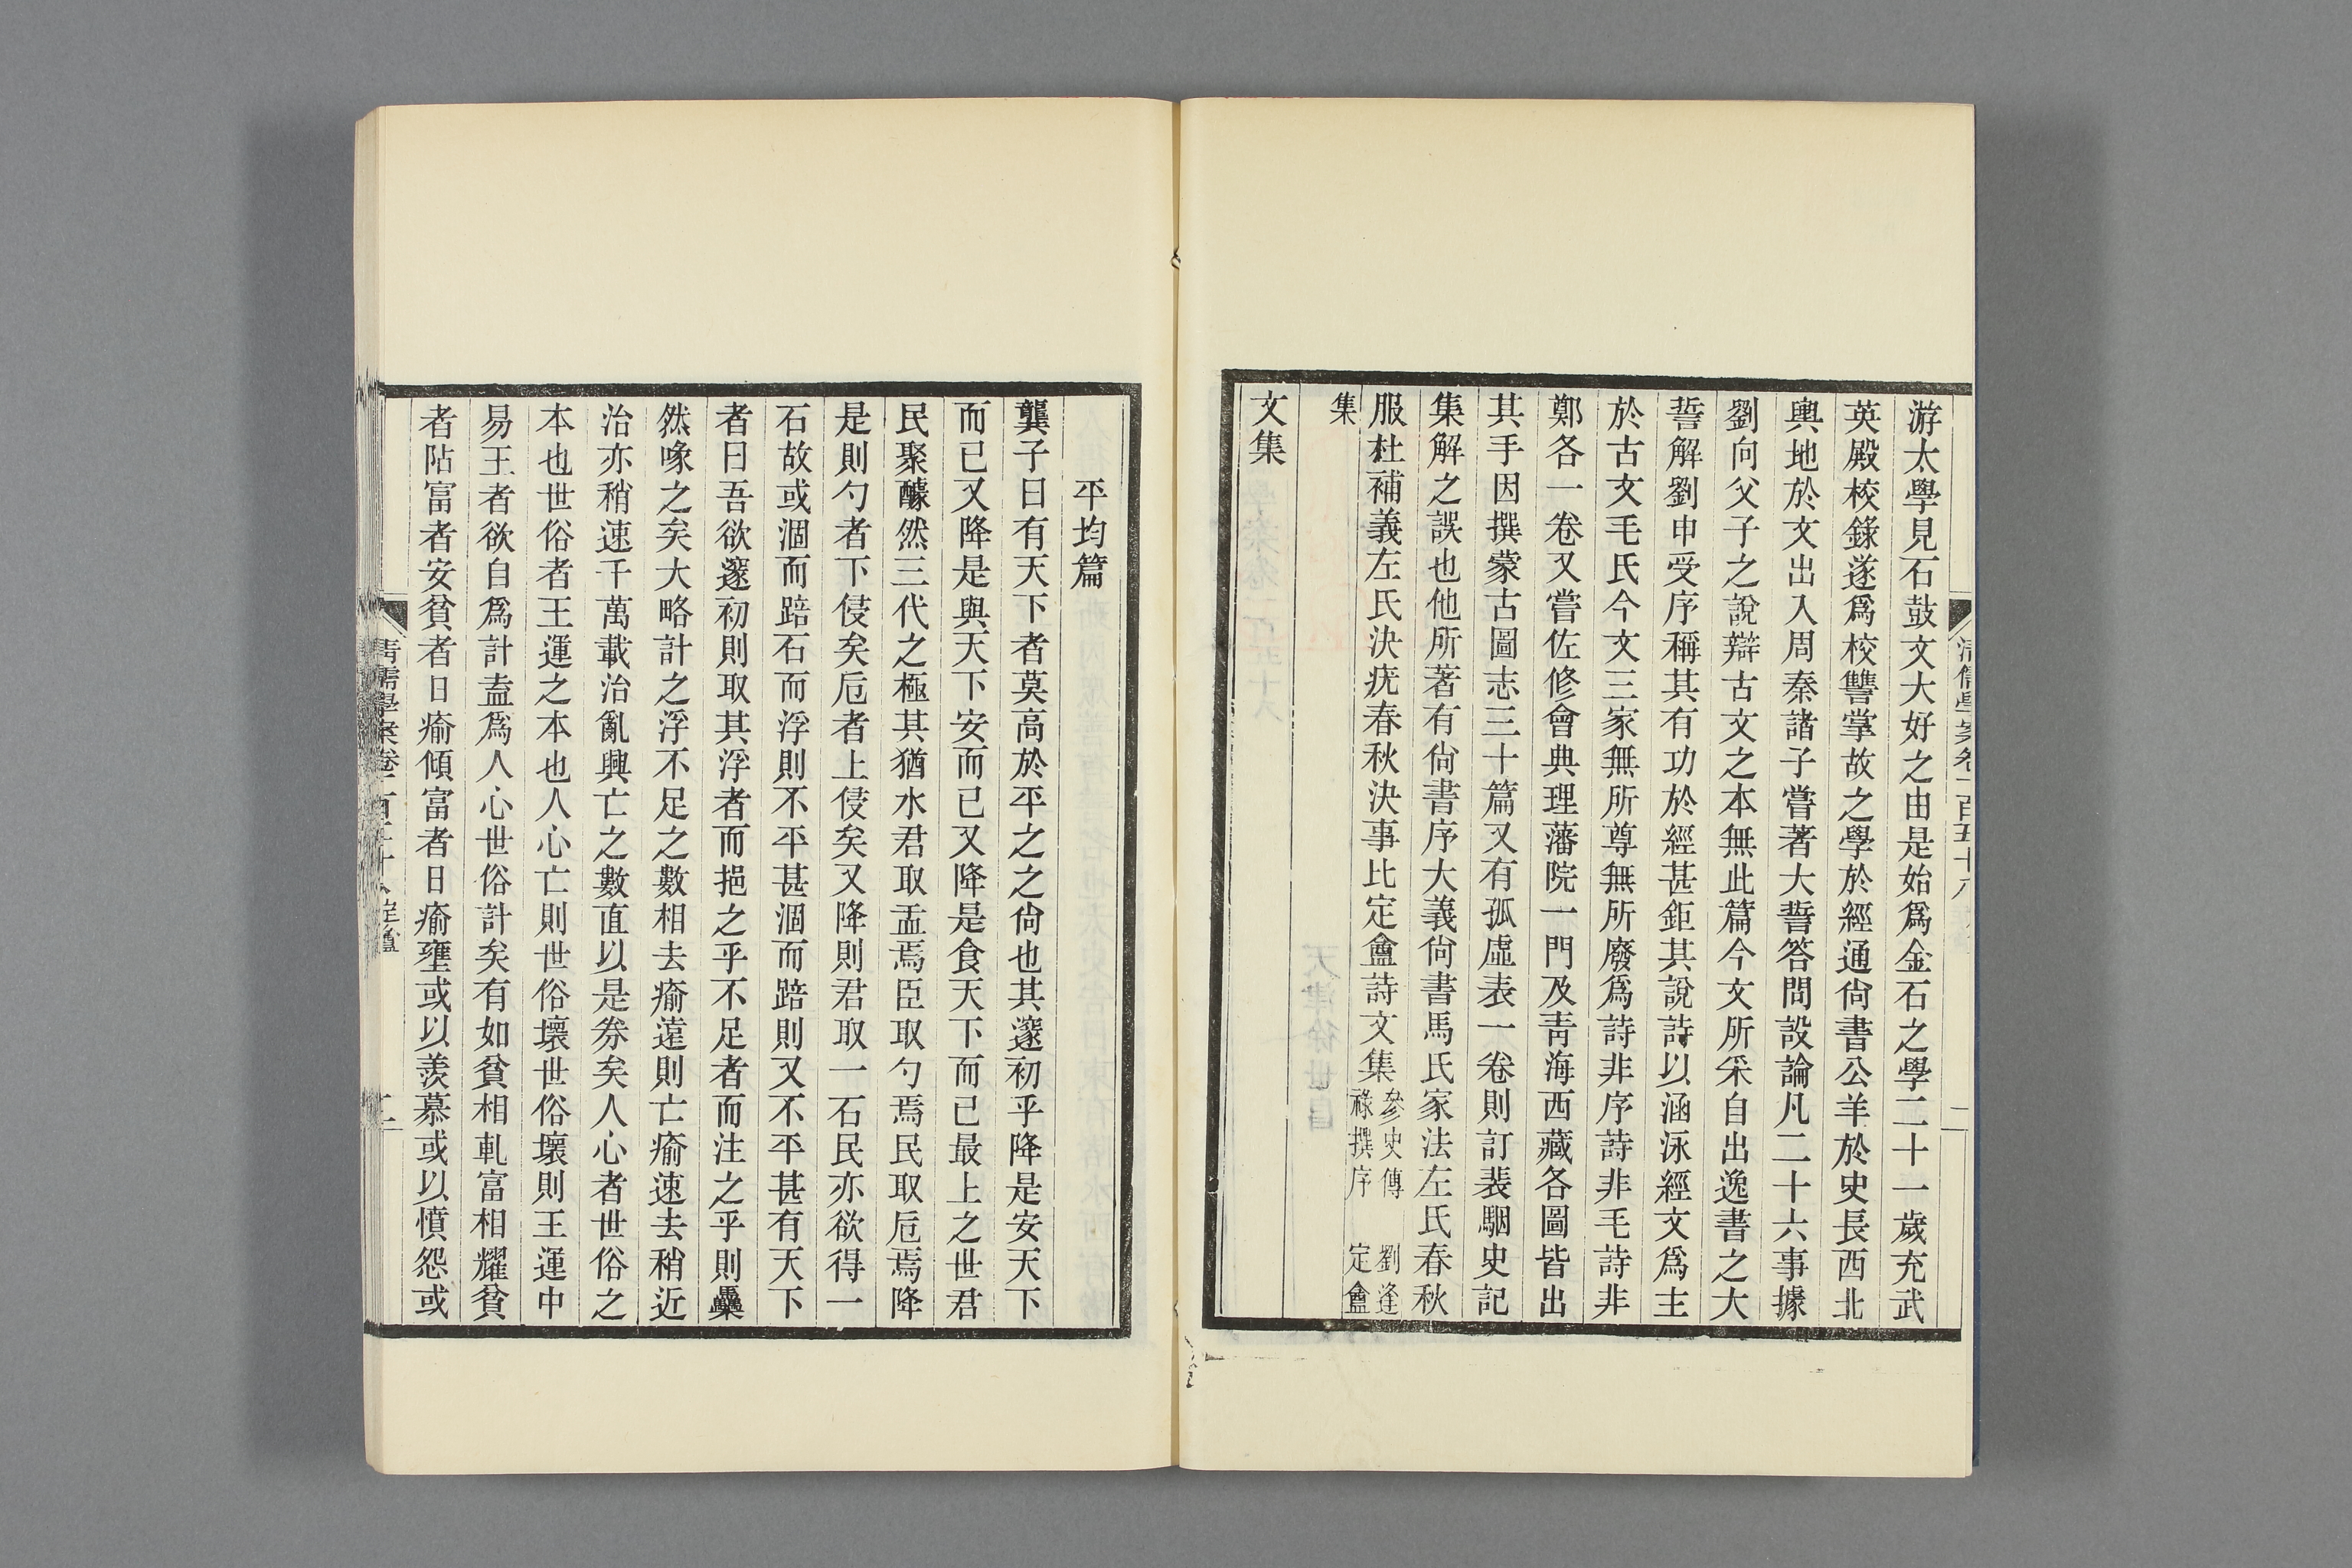 游太學見石鼓文大好之由是始爲金石之學二十一歲充武
英殿校錄遂爲校讐掌故之學於經通尙書公羊於史長西北
輿地於文出入周秦諸子嘗著大誓答問設論凡二十六事據
劉向父子之說辯古文之本無此篇今文所采自出逸書之大
誓解劉申受序稱其有功於經甚鉅其說詩以涵泳經文爲主
於古文毛氏今文三家無所尊無所廢爲詩非序詩非毛詩非
鄭各一卷又嘗佐修會典理藩院一門及靑海西藏各圖皆出
其手因撰蒙古圖志三十篇又有孤虛表一卷則訂裴駰史記
集解之誤也他所著有尙書序大義尙書馬氏家法左氏春秋
服杜補義左氏決疣春秋決事比定盦詩文集參史傳 劉逢
祿撰序 定盦
集
文集
平均篇
龔子曰有天下者莫高於平之之尙也其邃初乎降是安天下
而已又降是與天下安而已又降是食天下而已最上之世君
民聚醵然三代之極其猶水君取盂焉臣取勺焉民取卮焉降
是則勺者下侵矣卮者上侵矣又降則君取一石民亦欲得一
石故或涸而踣石而浮則不平甚涸而踣則又不平甚有天下
者曰吾欲邃初則取其浮者而挹之乎不足者而注之乎則㒹
然喙之矣大略計之浮不足之數相去痡遠則亡痡速去稍近
治亦稍速千萬載治亂興亡之數直以是券矣人心者世俗之
本也世俗者王運之本也人心亡則世俗壞世俗壞則王運中
易王者欲自爲計盍爲人心世俗計矣有如貧相軋富相耀貧
者阽富者安貧者日痡傾富者日痡壅或以羨慕或以憤怨或
淸儒學案卷一百五十八 定盦
二